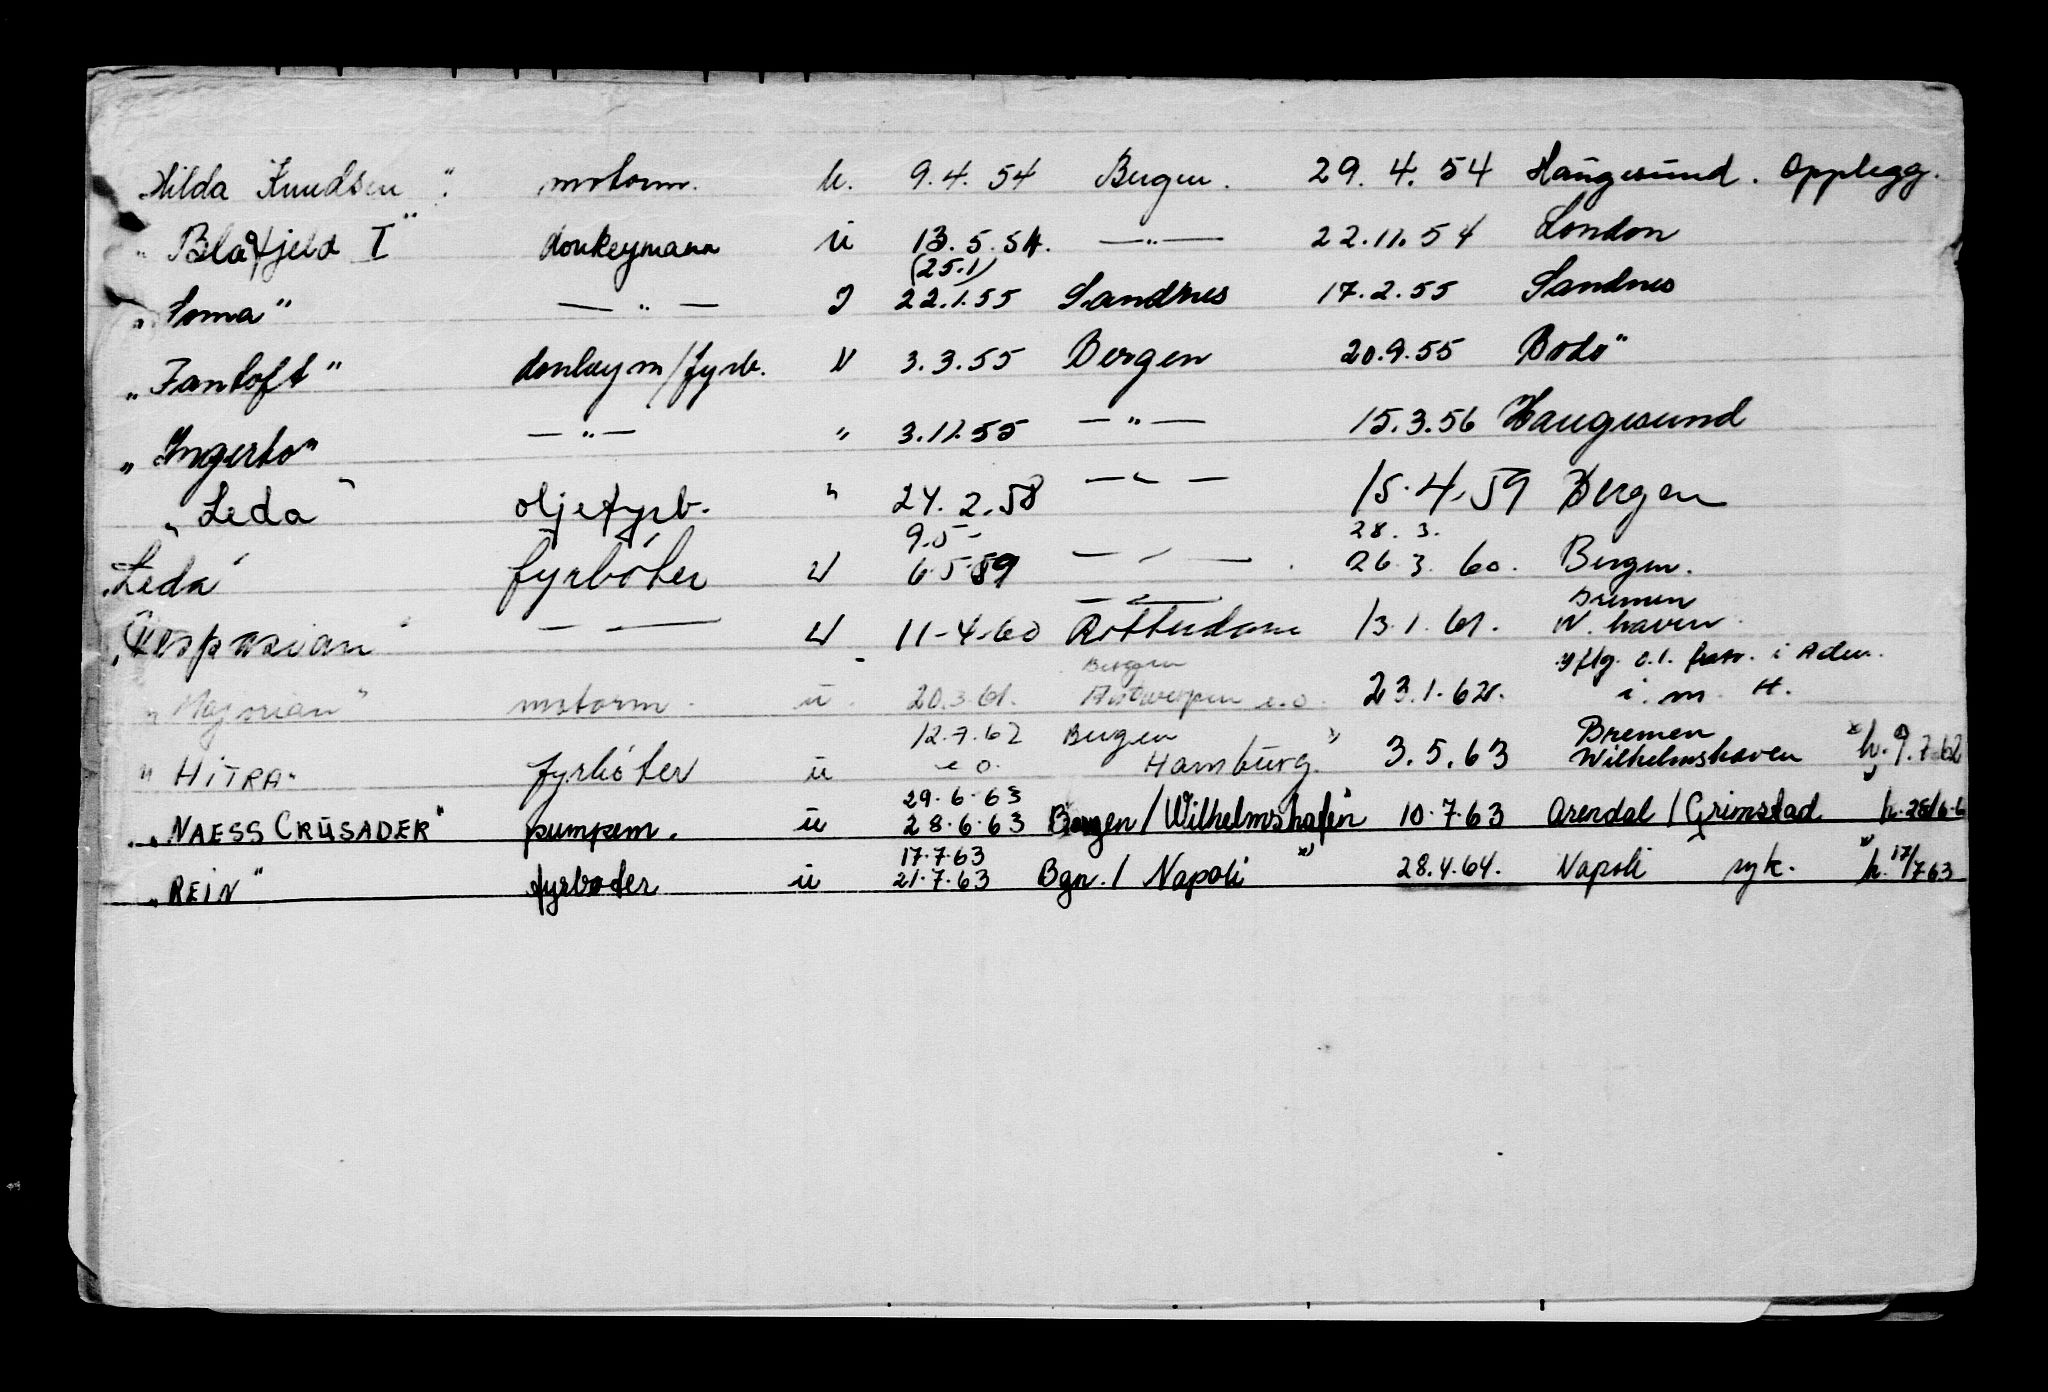 Hilda Knudsen". motorm. u. 9.4.54 Bergen. 29.4.54 Haugesund. Opplegg.
"Blåfjeld I" donkeymann u 13.5.54. —"— 22.11.54 London
(25.1)
"Soma" —"— 22.1.55 Sandnes 17.2.55 Sandnes
"Fantoft" donkeym/fyrb. U 3.3.55 Bergen 20.9.55 Bodö"
"Ingerto" —"— " 3.11.55 —"— 15.3.56 Haugesund
"Leda" oljefyrb. " 24.2.58 —"— 15.4.59 Bergen
9.5- 28.3.
"Leda" fyrböter U 6.5.59 —"— 26.3.60. Bergen.
—"— Bremen
"Vespasian" —"— U 11-4-60 Rotterdam 13.1.61. W.haven.
Bergen i Aden.
"Majorian" motorm. u. 20.3.61. Antwerpen e.o. 23.1.62. i. m. H.
12.7.62 Bergen Bremen
"HITRA" fyrböter u e o. Hamburg. x) 3.5.63 Wilhelmshaven x) h. 9.7.62
29.6.63
"NAESS CRUSADER" pumpem. u 28.6.63 Bergen/Wilhelmshafen 10.7.63 Arendal/Grimstad h. 28/6-6
17.7.63
"REIN" fyrbøter u 21.7.63 Bgn./Napoli x) 28.4.64. Napoli syk. x) h. 17/7 63